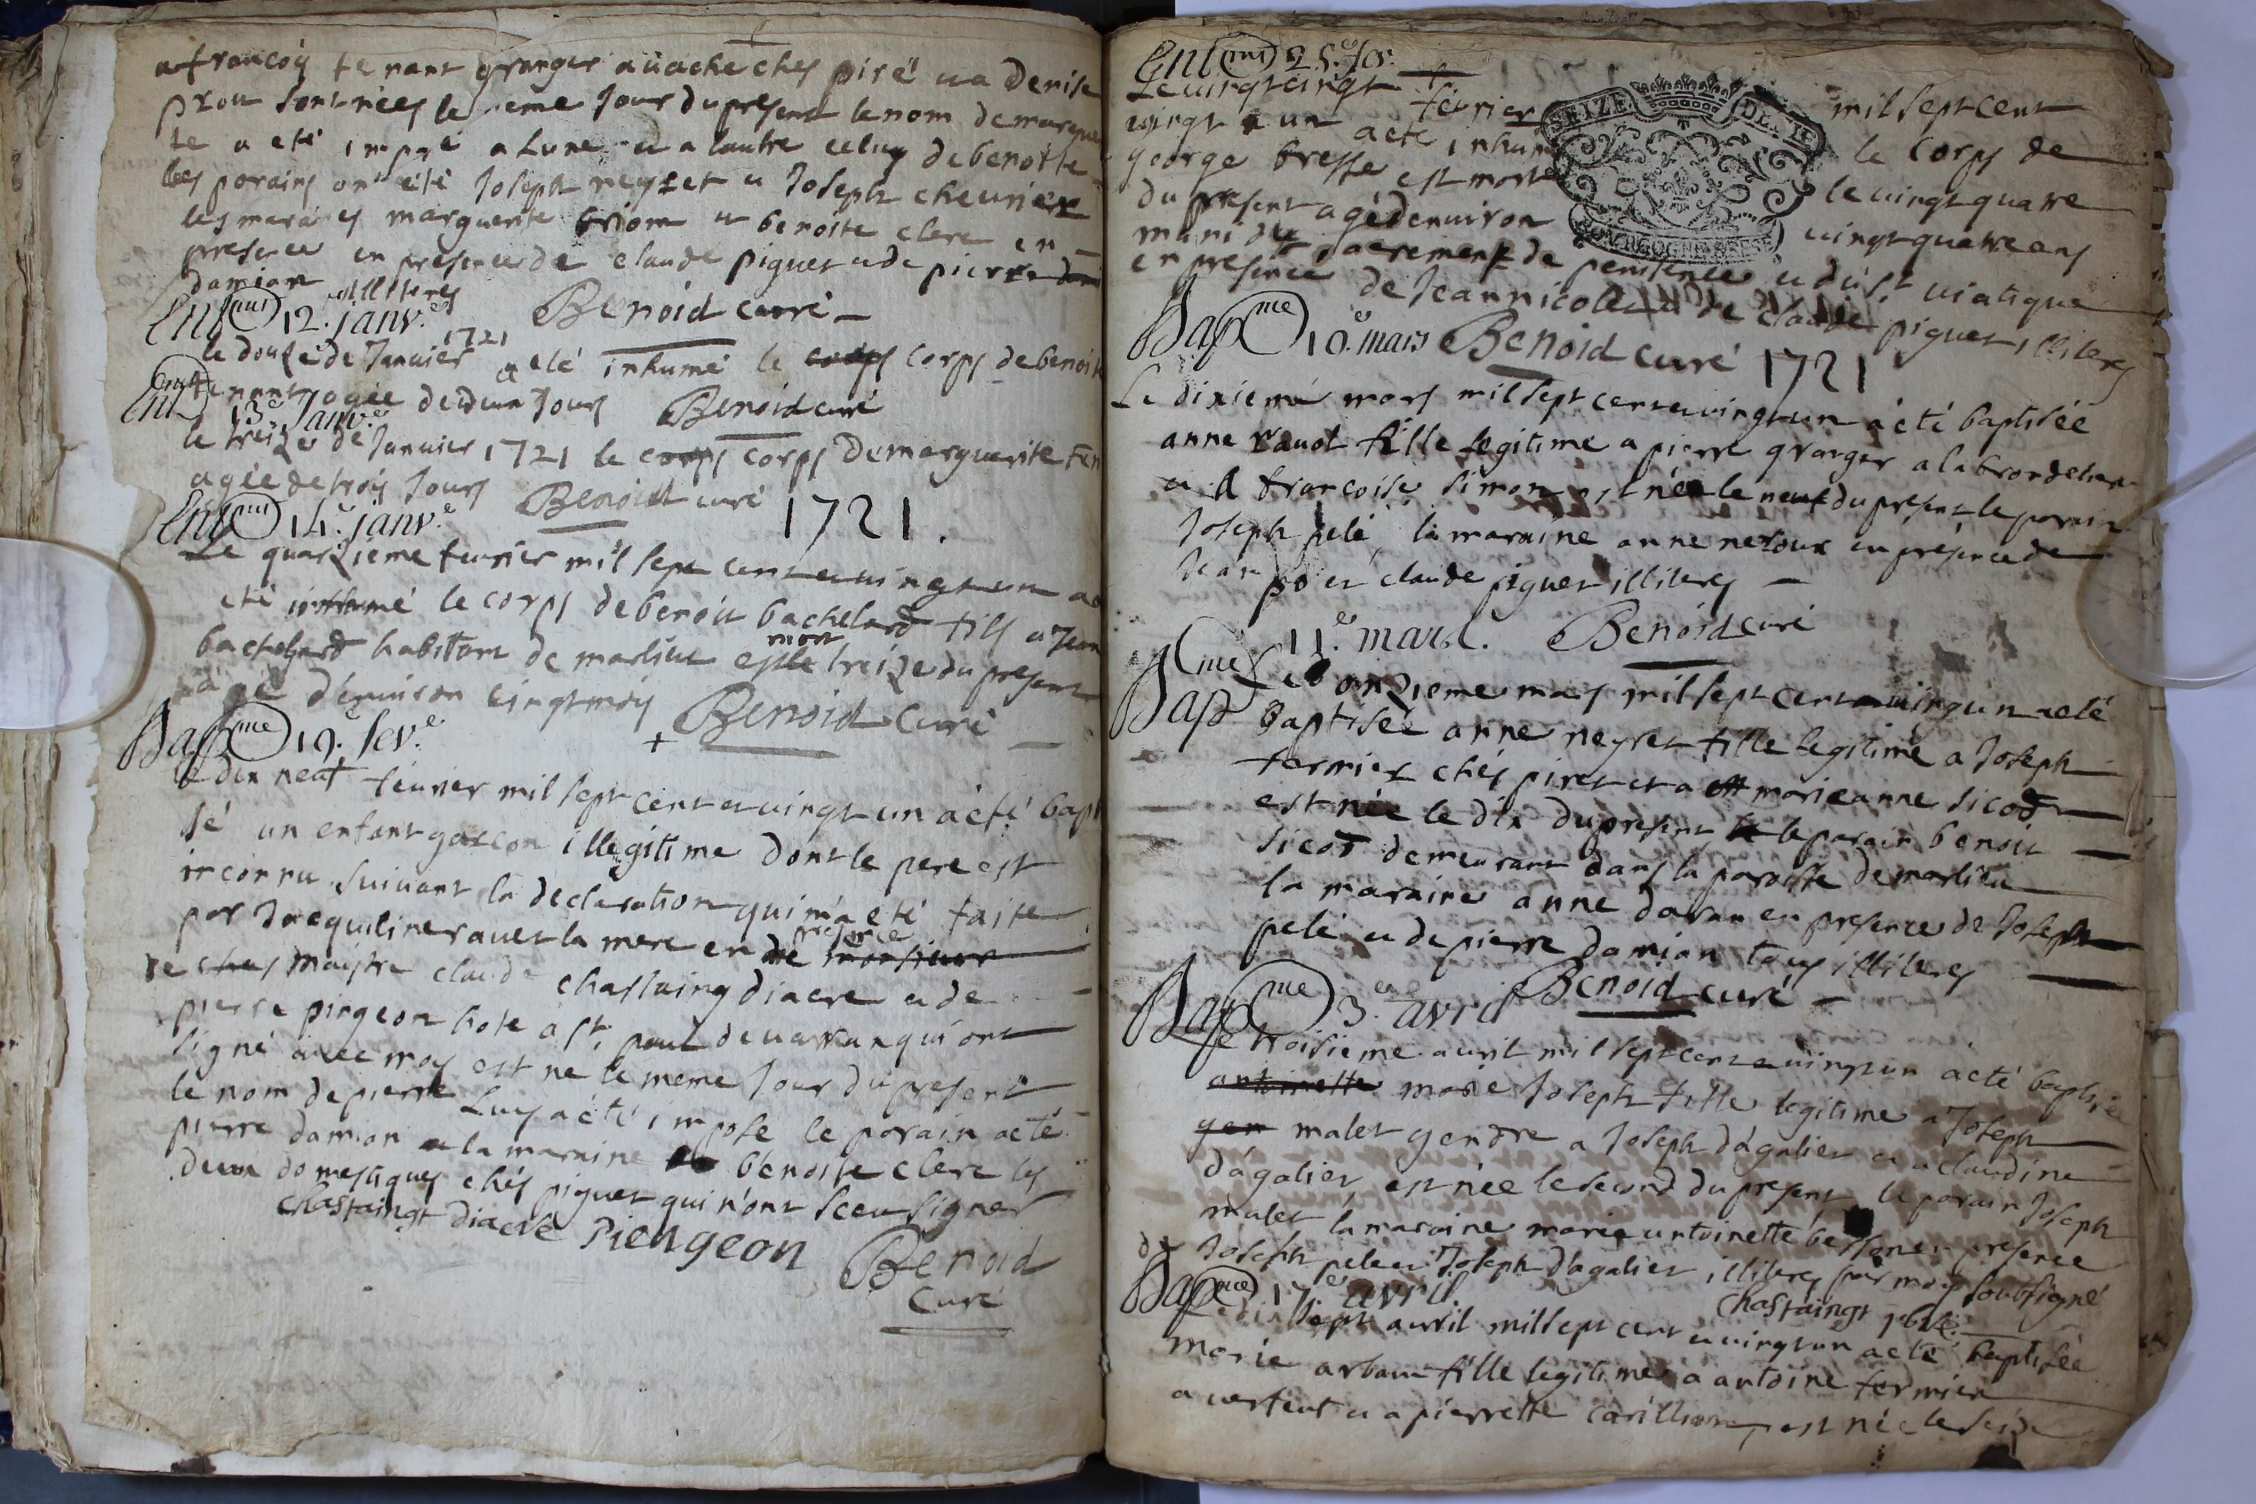 a françois tenant granger a uache ches piré et a Denise
prou sont nées le meme Jour du present le nom de margueri
te a eté imposé a Lune et a lautre celuy de benoitte
les parains ont été Joseph neyret et Joseph cheurier
les maraines marguerite briom et benoite clerc en
presence en presence de claude piguet et de pierre
damian illiteres
Benoid curé
Ent.mt 12.e janv.er
le douze de Januier 1721 a eté inhumé le corps corps de benoit
tenant ogée de deux Jours Benoid curé
Ent.mt 13.e Janv.er
le treize de Januier 1721 le corps corps de marguerite ten
agée de trois Jours Benoid curé
Ent.mt 14.e janv.e 1721.
Le quarzieme feurier mil sept cent et uingt un a
eté inhumé le corps de benoit bachelard fils a Jean
bachelard habitant de marlieu est mort le treize du present
agé d'enuiron cinqt mois
+ Benoid Curé
Bap.me 19.e fev.er
le dix neuf feurier mil sept cent et uingt un a été bapt
sé un enfant garcon illegitime dont le pere est
inconnu suiuant la declaration qui m'a été faite
par Jacquiline rauet la mere en presence de monsieur
de ches maistre claude chastaing diacre et de
pierre pingeon hote a St. paul de uarran qui ont
signé avec moy est ne le meme Jour du present
le nom de pierre Luy a eté imposé le parain a eté
pierre damian et la maraine benoite clerc les
deux domestiques chés piguet qui n'ont sceu signer
Chastaingt diacre Piengeon Benoid
Curé
Ent.mt 25.e fev.
Le uingt cinqt feurier mil sept cent
uingt et un a eté inhumé le corps de
george bresse est mort le uingt quatre
du present agé denuiron uingt quatre ans
muni du sacrement de penitence et du St. uiatique
en presence de Jean nicolet et de claude piguet illiteres
Benoid curé 1721
Bap.me 10.e mars
Le dixieme mars mil sept cent et uingt un a eté baptisée
anne rauot fille legitime a pierre granger a la brondeliere
et a francoise simon est née le neuf du present le parain
Joseph pelé, la maraine anne neroux en présence de
Jean po et claude piguet illiteres
Benoid curé
Bap.me 11.e mars.
Le onzieme mars mil sept cent et uingt un a eté
baptisée anne neyret fille legitime a Joseph
fermier chés piret et a marieanne sicod
est née le dix du present le parain benoit
sicod demeurant dans la paroisse de marlieu
la maraine anne daran en presence de Joseph
pelé et de pierre damian tous illiteres
Benoid curé
Bap.me 3.e avril
le troisieme auril mil sept cent et uingt un a eté baptisée
antoinette marie Joseph fille legitime a Joseph
gen malet gendre a Joseph dagalier et a claudine
dagalier, est née le second du present le parain Joseph
malet la maraine marie antoinette besson en presence
de Joseph pelé et Joseph dagalier illiteres par moy soubsigné
Chastaingt pbre.
Bap.me 17.e avril
Le dix sept auril mil sept cent et uingt un a eté baptisée
marie arbaux fille legitime a antoine fermier
a uertent et a pierrette carillion est née le seize